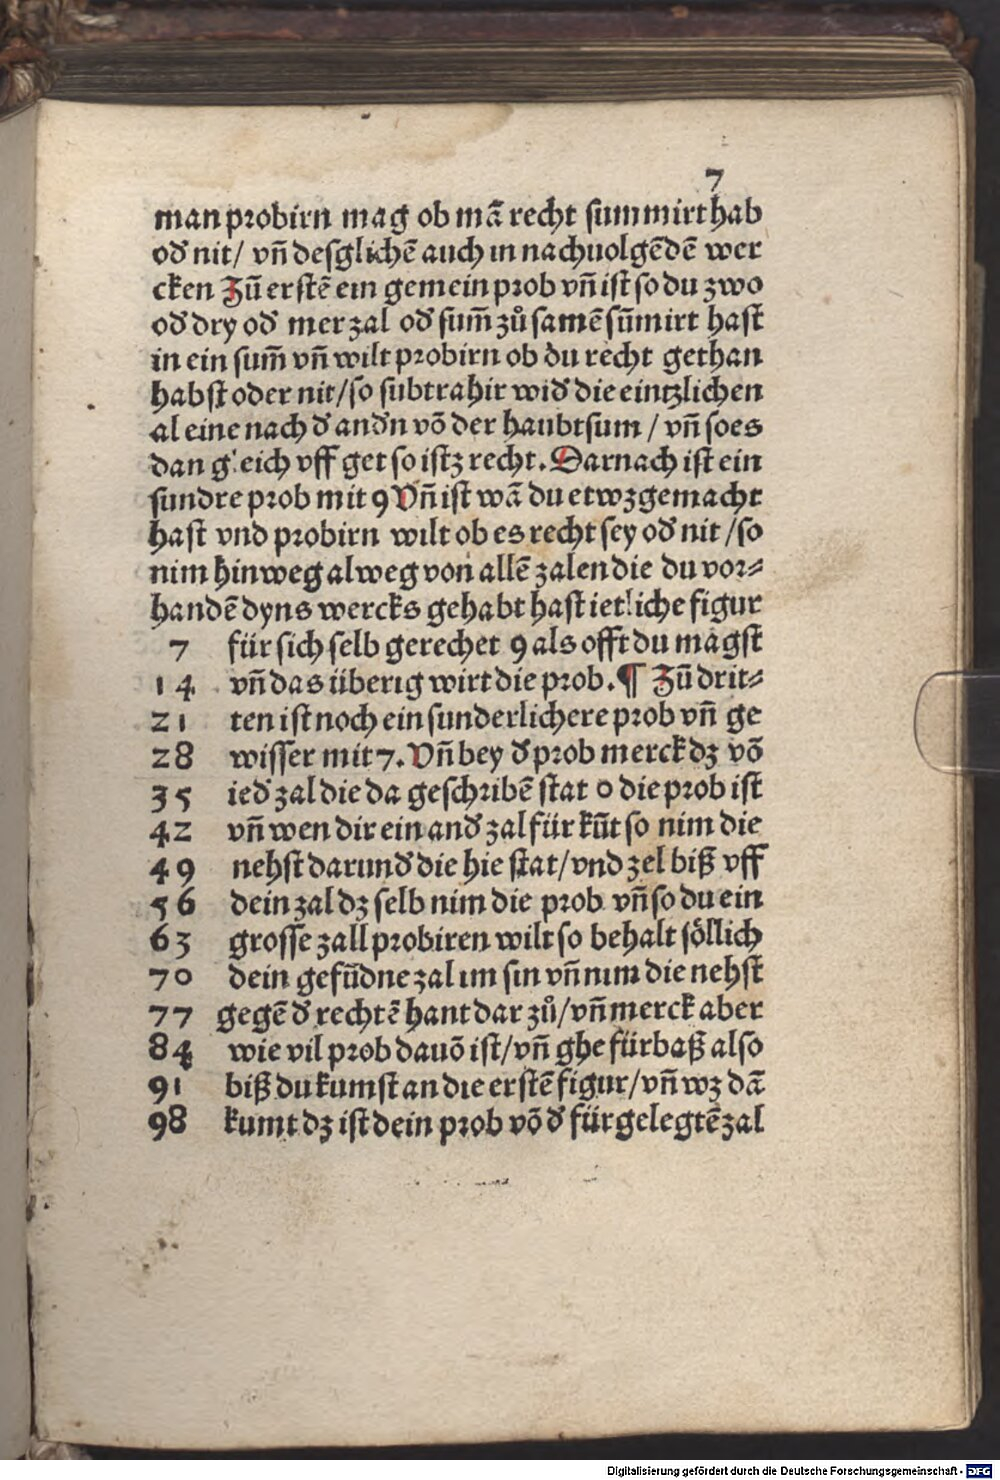 7
man probirn mag ob mā recht summirt hab
od̕ nit/ vn̄ desglichē auch in nachuolgēdē wer
cken Zū erstē ein gemein prob vn̄ ist so du zwo
od̕ dry od̕ mer zal od̕ sum̄ zůsamē sūmirt hast
in ein sum̄ vn̄ wilt probirn ob du recht gethan
habst oder nit/so subtrahir wid̕ die eintzlichen
al eine nach d̕ and̕n vō der haubtsum / vn̄ soes
dan gleich vff get so istz recht. Darnach ist ein
sundre prob mit 9 Vn̄ ist wā du etwz gemacht
hast vnd probirn wilt ob es recht sey od̕ nit /so
nim hinweg alweg von allē zalen die du vor⸗
handē dyns wercks gehabt hast ietliche figur
7 für sich selb gerechet 9 als offt du magst
14 vn̄ das überig wirt die prob. ¶ Zū drit⸗
21 ten ist noch ein sunderlichere prob vn̄ ge
28 wisser mit 7. Vn̄ bey d̕ prob merck dz vō
35 ied̕ zal die da geschribē stat 0 die prob ist
42 vn̄ wen dir ein and̕ zal für kūt so nim die
49 nehst darund̕ die hie stat/vnd zel biß vff
56 dein zal dz selb nim die prob vn̄ so du ein
63 grosse zall probiren wilt so behalt söllich
70 dein gefūdne zal im sin vn̄ nim die nehst
77 gegē d̕ rechtē hant dar zů/vn̄ merck aber
84 wie vil prob dauō ist/vn̄ ghe fürbaß also
91 biß du kumst an die erstē figur/vn̄ wz dā
98 kumt dz ist dein prob vō d̕ fürgelegtē zal
Digitalisierung gefördert durch die Deutsche Forschungsgemeinschaft - DFG